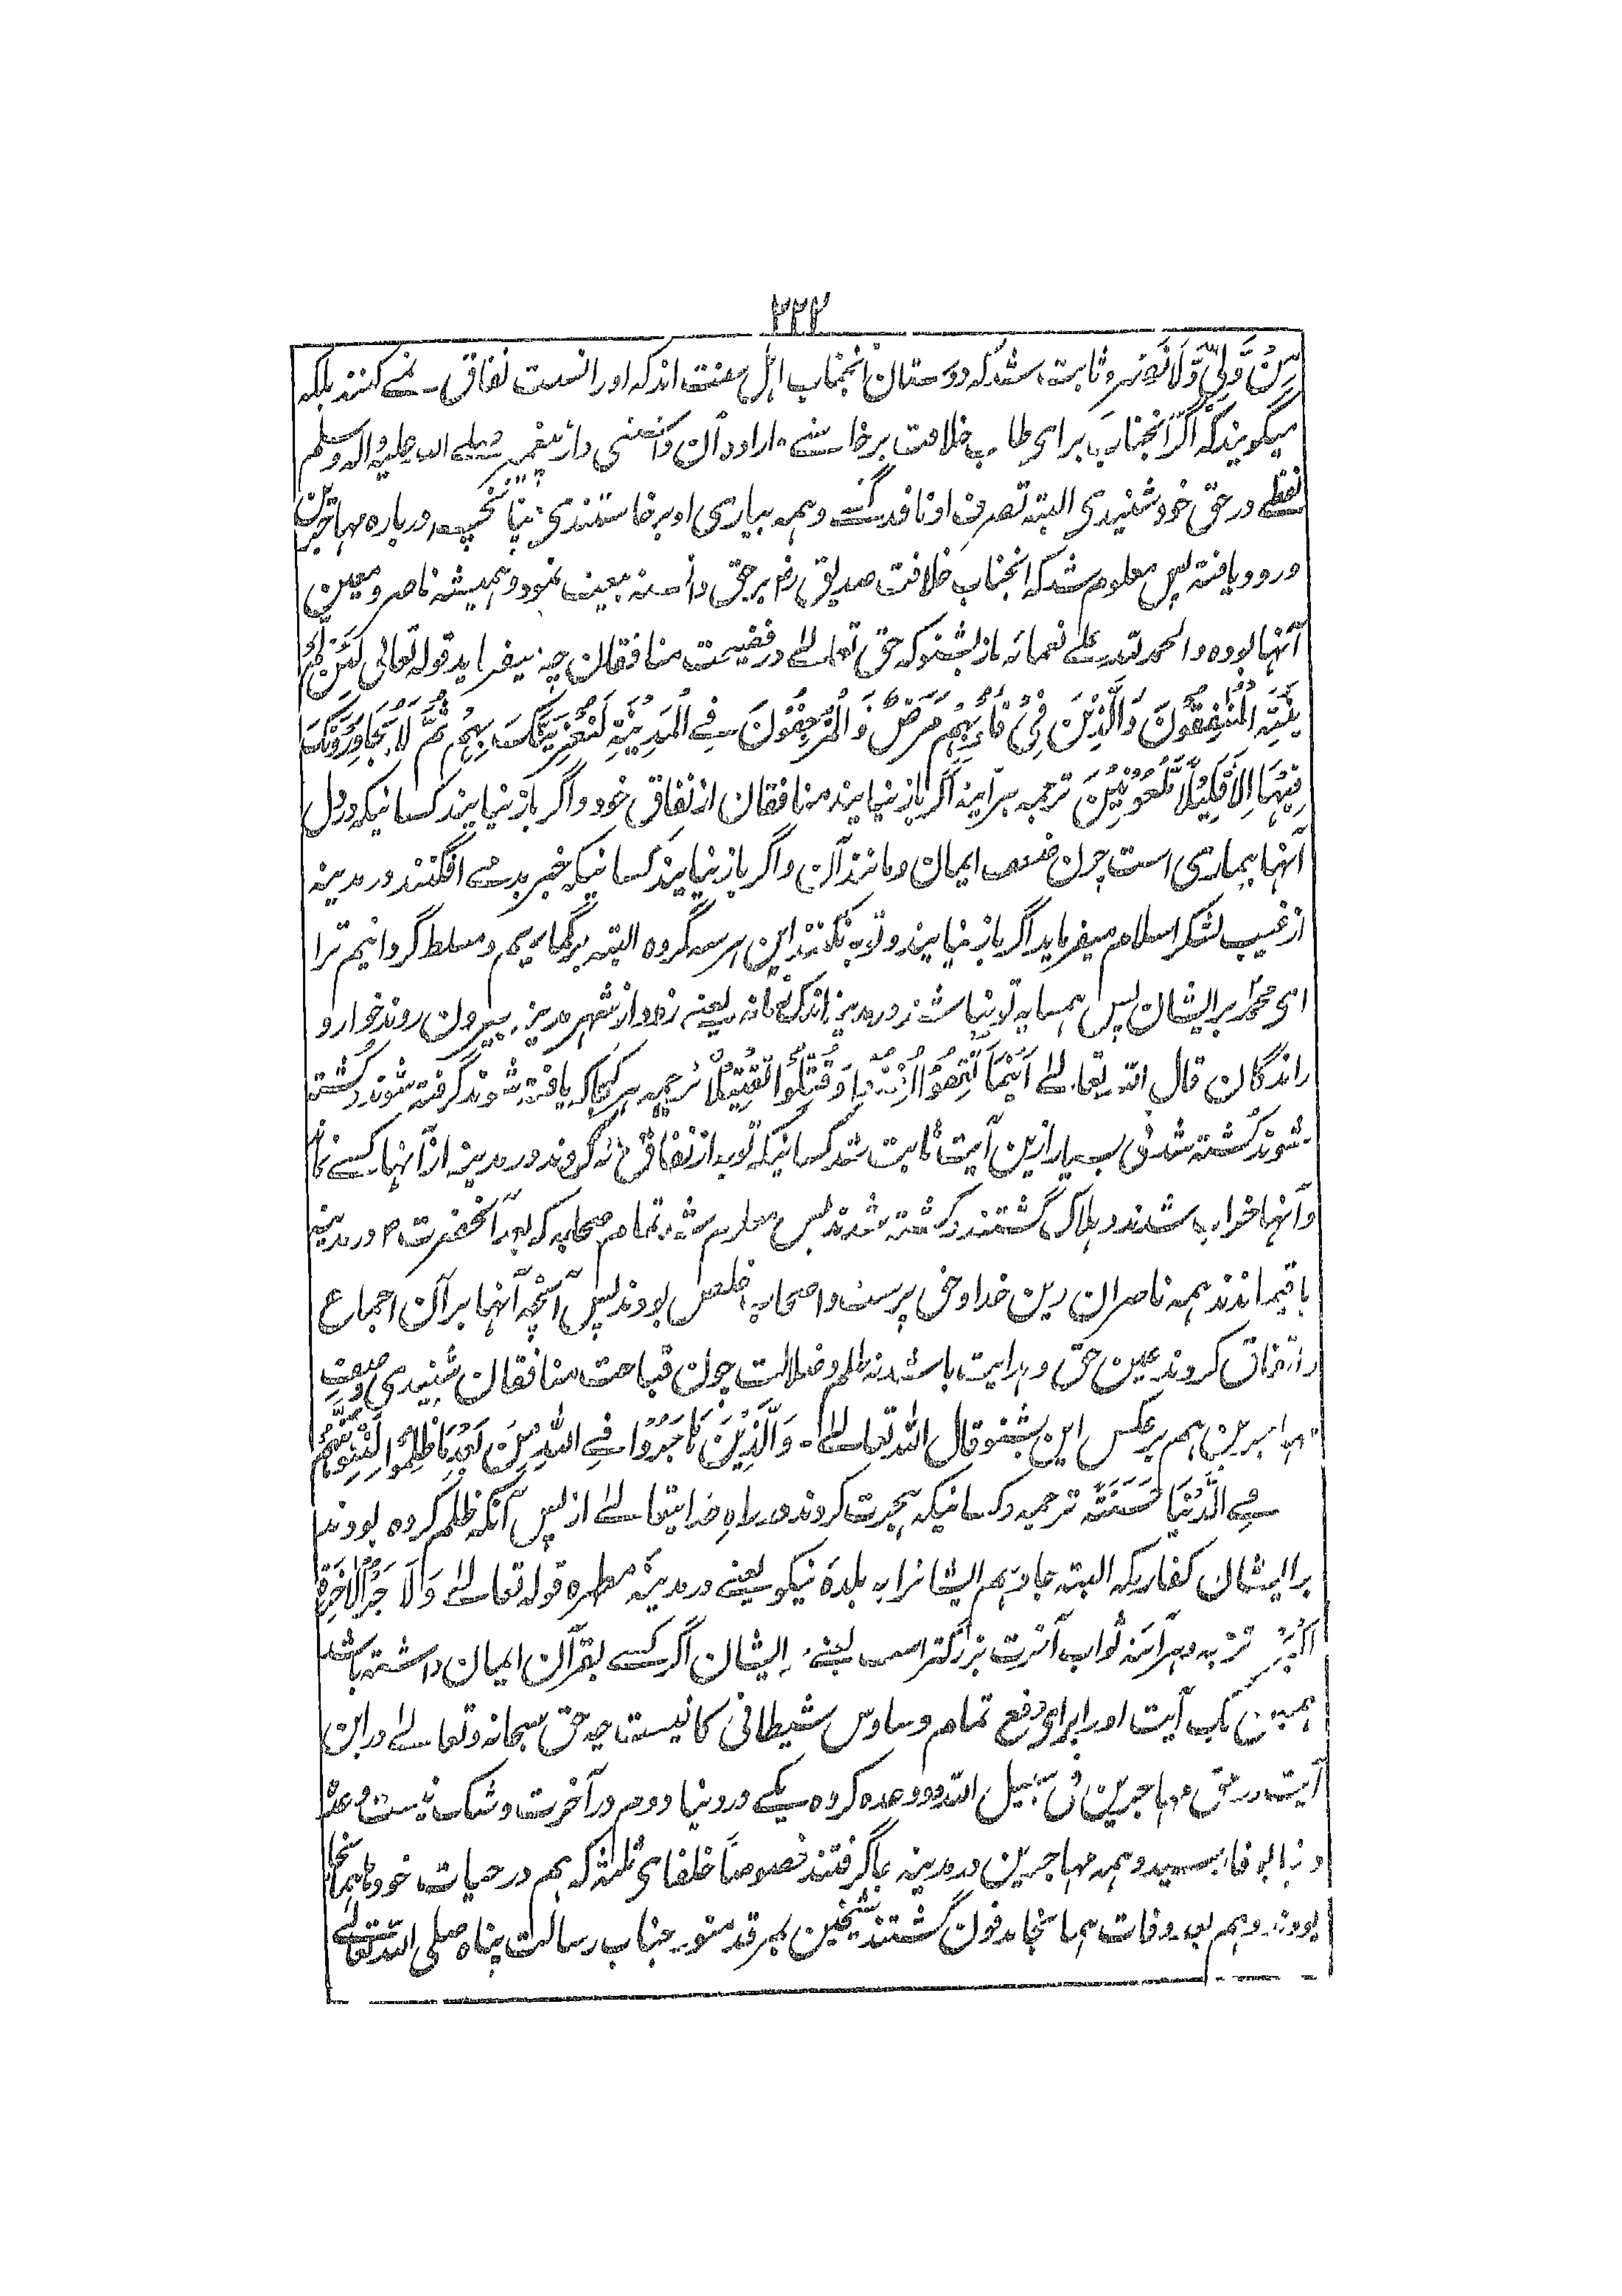 ۲۲۲
مِنْ وَّلِيٍّ وَّلَا نَصِيْرٍ و ثابت شد که دوستان آنجناب اهل سنت اند که اورا نسبت نفاق نمے کنند بلکه
میگویند که اگر آنجناب برای طلب خلافت برخاستے و اراده آن داشتی و از پیغمبر صلے الله علیه و اله وسلم
لفظے در حق خود شنیدی البته تصرف او نافذ گشتے و همه بیاری او برخاستندی چنانچه درباره مهاجرین
ورود یافته پس معلوم شد که آنجناب خلافت صدیق رض برحق دانسته بیعت نمود و همیشه ناصر و معین
آنها بوده و الحمد لله علے نعمائه باز بشنو که حق تعالے در فضیحت منافقان چه میفرماید قوله تعالی لَئِنْ لَّمْ
يَنْتَهِ الْمُنٰفِقُوْنَ وَالَّذِيْنَ فِيْ قُلُوْبِهِمْ مَرَضٌ وَّالْمُرْجِفُوْنَ فِے الْمَدِيْنَةِ لَنُغْرِيَنَّكَ بِهِمْ ثُمَّ لَا يُجَاوِرُوْنَكَ
فِيْهَا اِلَّا قَلِيْلًا مَّلْعُوْنِيْنَ ترجمه هرآینه اگر باز نیایند منافقان از نفاق خود و اگر باز نیایند کسانیکه در دل
آنها بیماری است چون ضعف ایمان و مانند آن و اگر باز نیایند کسانیکه خبر بد مے افگنند در مدینه
از غیب لشکر اسلام میفرماید اگر باز نیایند و توبه نکنند این هر سه گروه البته برگماریم و مسلط گردانیم ترا
ای محمد بر ایشان پس همسایه تو نباشند در مدینه اندک زمانه یعنے زود از شهر مدینه بیرون روند خوار و
راندگان قال الله تعالے اَيْنَمَا ثُقِفُوْا اُخِذُوْا وَقُتِّلُوْا تَقْتِيْلًا ترجمه هر کجا که یافته شوند گرفته شوند و کشته
شوند کشته شدنی بسیار ازین آیت ثابت شد کسانیکه توبه از نفاق نه کردند در مدینه از آنها کسے نماند
و آنها خراب شدند و هلاک گشتند و کشته شدند پس معلوم شد تمام صحابه که بعد آنحضرت ص در مدینه
باقیماندند همه ناصران دین خدا و حق پرست و اصحاب مخلص بودند پس آنچه آنها بر آن اجماع
و اتفاق کردند عین حق و هدایت باشد نه ظلم و ضلالت چون قباحت منافقان شنیدی وصف
مهاجرین هم بر عکس این بشنو قال الله تعالے ۔ وَالَّذِيْنَ هَاجَرُوْا فِے اللّٰهِ مِنْ بَعْدِ مَا ظُلِمُوْا لَنُبَوِّئَنَّهُمْ
فِے الدُّنْيَا حَسَنَةً ترجمه و کسانیکه هجرت کردند در راه خدایتعالے از پس آنکه ظلم کرده بودند
بر ایشان کفار مکه البته جا دهم ایشانرا به بلدهٔ نیکو یعنے در مدینهٔ مطهره قوله تعالے وَلَاَجْرُ الْاٰخِرَةِ
اَكْبَرُ ترجمه و هرآئنه ثواب آخرت بزرگتر است یعنے ایشان اگر کسے بقرآن ایمان داشته باشد
همین یک آیت اورا برای دفع تمام وساوس شیطانی کافیست چه حق سبحانه و تعالے در این
آیت در حق مهاجرین فی سبیل الله دو وعده کرده یکے در دنیا دوم در آخرت و شک نیست وعده
دنیا بوفا رسید و همه مهاجرین در مدینه جا گرفتند خصوصاً خلفای ثلثه که هم در حیات خود همانجا
بودند و هم بعد وفات همانجا مدفون گشتند شیخین بمرقد منور جناب رسالت پناه صلی الله تعالے